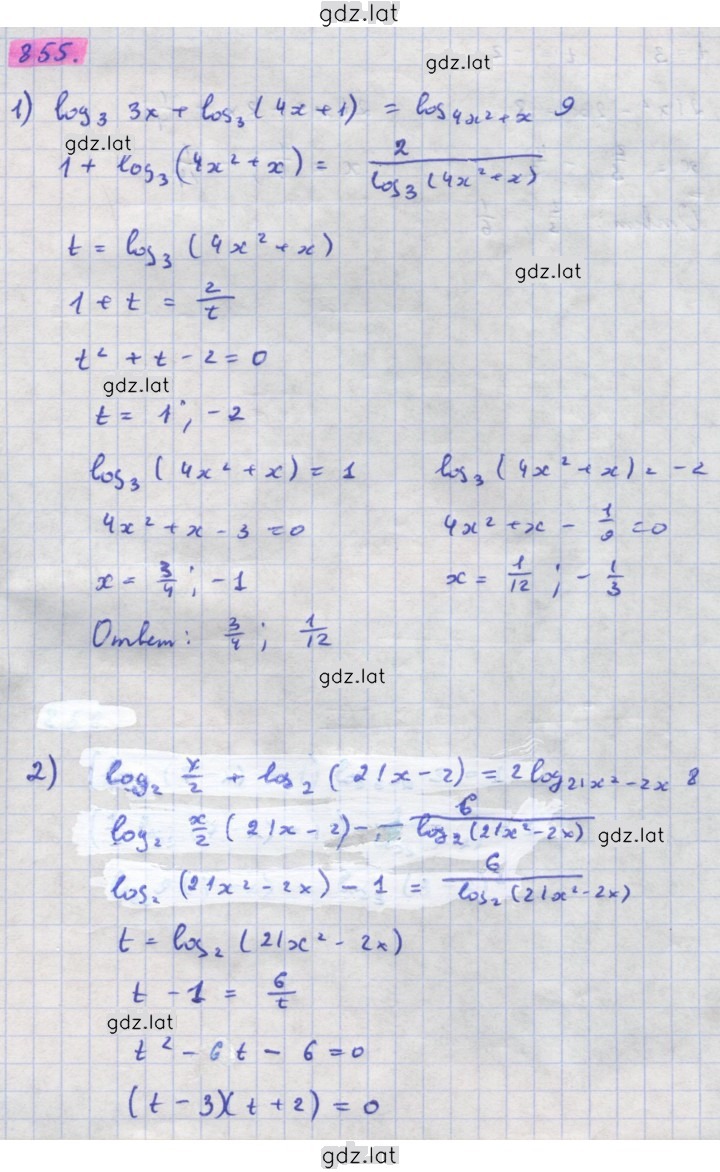 gdz.lat
855.
gdz.lat
1) log₃ 3x + log₃ (4x+1) = log₄ₓ²₊ₓ 9
gdz.lat
1 + log₃ (4x² + x) = 2 / log₃ (4x² + x)
t = log₃ (4x² + x)
gdz.lat
1 + t = 2/t
t² + t - 2 = 0
gdz.lat
t = 1 ; -2
log₃ (4x² + x) = 1 log₃ (4x² + x) = -2
4x² + x - 3 = 0 4x² + x - 1/9 = 0
x = 3/4 ; -1 x = 1/12 ; - 1/3
Ответ: 3/4 ; 1/12
gdz.lat
2) log₂ x/2 + log₂ (21x - 2) = 2 log₂₁ₓ²₋₂ₓ 8
log₂ x/2 (21x - 2) = 6 / log₂ (21x² - 2x)
gdz.lat
log₂ (21x² - 2x) - 1 = 6 / log₂ (21x² - 2x)
t = log₂ (21x² - 2x)
t - 1 = 6/t
gdz.lat
t² - 6t - 6 = 0
(t - 3)(t + 2) = 0
gdz.lat